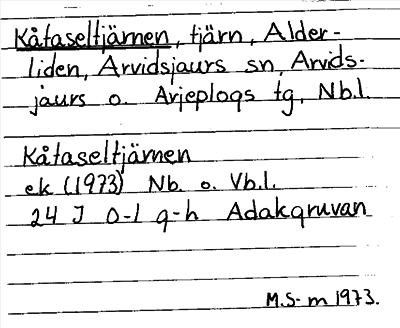 Kåtaseltjärnen, tjärn, Alder-
liden, Arvidsjaurs sn, Arvids-
jaurs o. Arjeplogs tg, Nb.l.
Kåtaseltjärnen
ek (1973) Nb. o. Vb.l.
24 J 0-1 g-h Adakgruvan
M.S-m 1973.